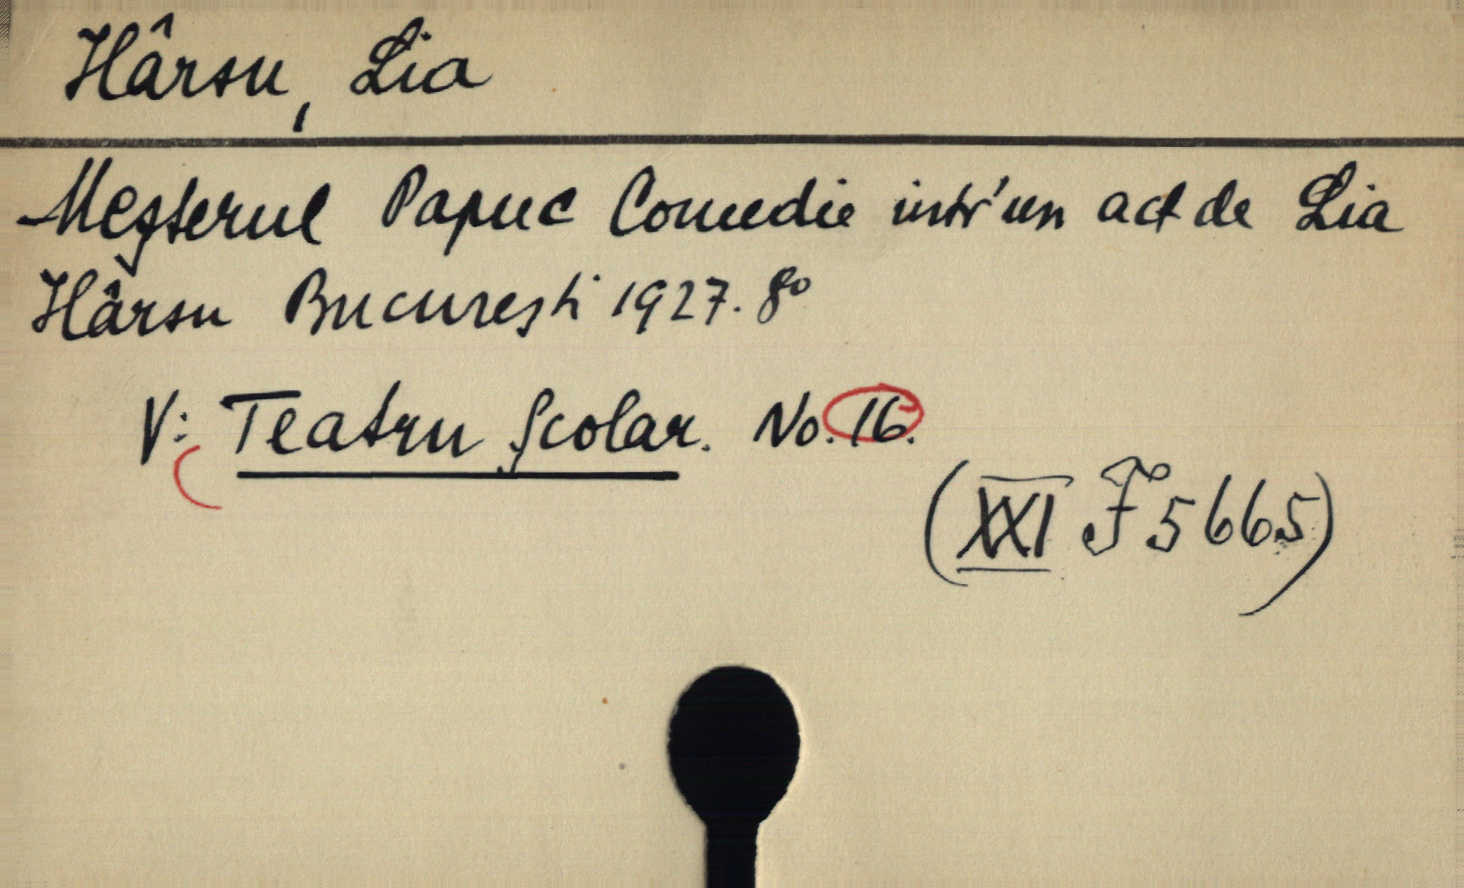 Hârsu, Lia
Meşterul Papuc Comedie intr'un act de Lia
Hârsu Bucureşti 1927. 8º
V: Teatru Şcolar. No. 16.
(XXI F 5665)